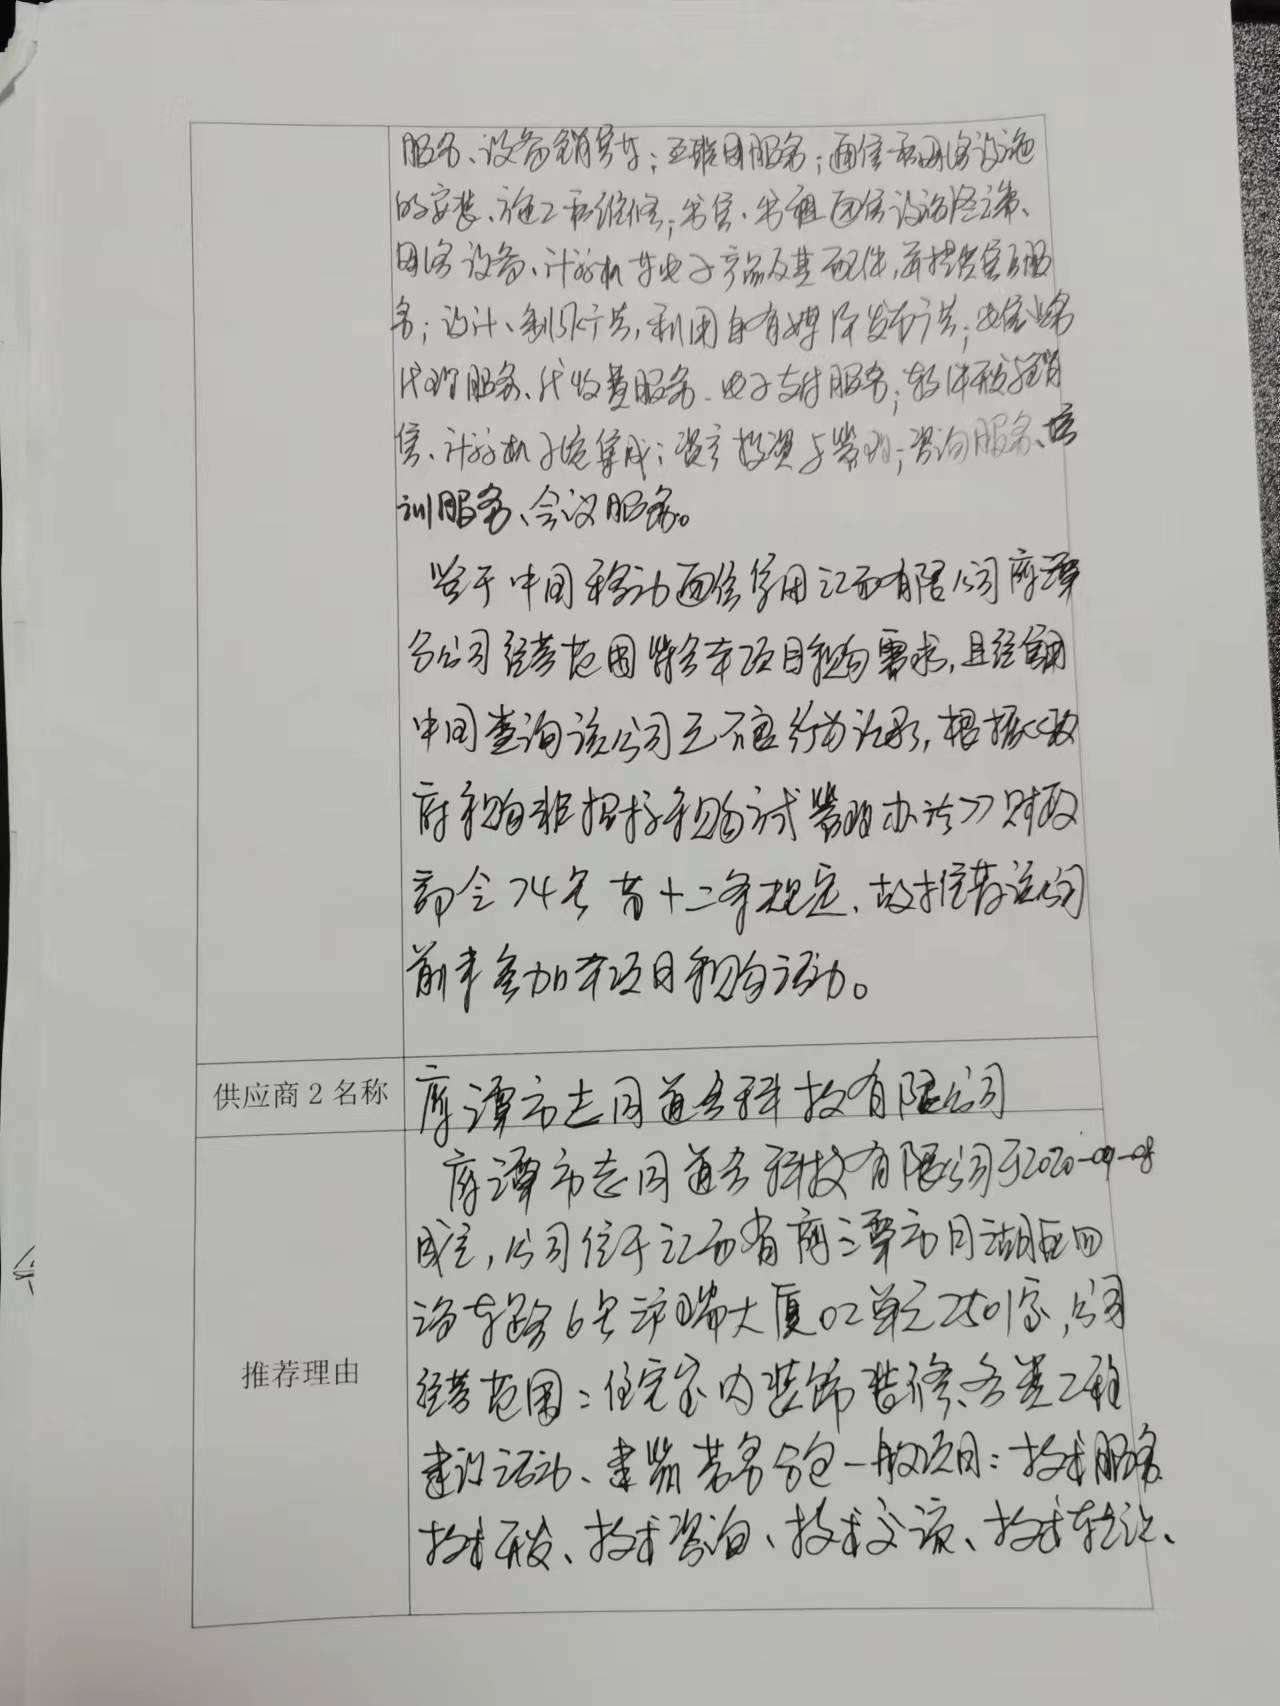 服务、设备销售等；互联网服务；通信和网络设施
的安装、施工和维修；出售、出租通信设施
网络设备、计算机等电子产品及其配件，并提供售后服
务；设计、制作广告，利用自有媒体发布广告；电信业务
代理服务、代收费服务、电子支付服务；软件开发销
售、计算机系统集成；资产投资与管理；咨询服务、培
训服务、会议服务。
鉴于中国移动通信集团江西有限公司鹰潭
分公司经营范围符合本项目采购需求，且经信用
中国查询该公司无不良行为记录，根据《政
府采购非招标采购方式管理办法》财政
部令74号第十二条规定，故推荐该公司
前来参加本项目采购活动。
供应商2名称
鹰潭市志同道合科技有限公司
推荐理由
鹰潭市志同道合科技有限公司于2020-09-08
成立，公司位于江西省鹰潭市月湖区
路6号大厦02单元2501室，公司
经营范围：住宅室内装饰装修、各类工程
建设活动、建筑劳务分包一般项目：技术服务
技术开发、技术咨询、技术交流、技术转让、